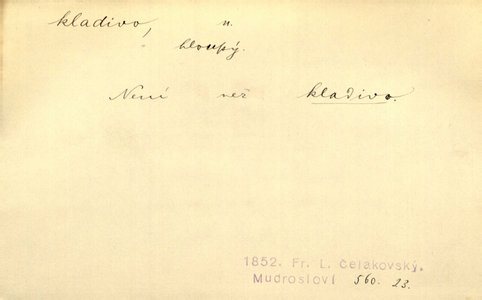 kladivo, n.
hloupý.
Není než kladivo.
1852. Fr. L. Čelakovský.
Mudrosloví 560. 23.